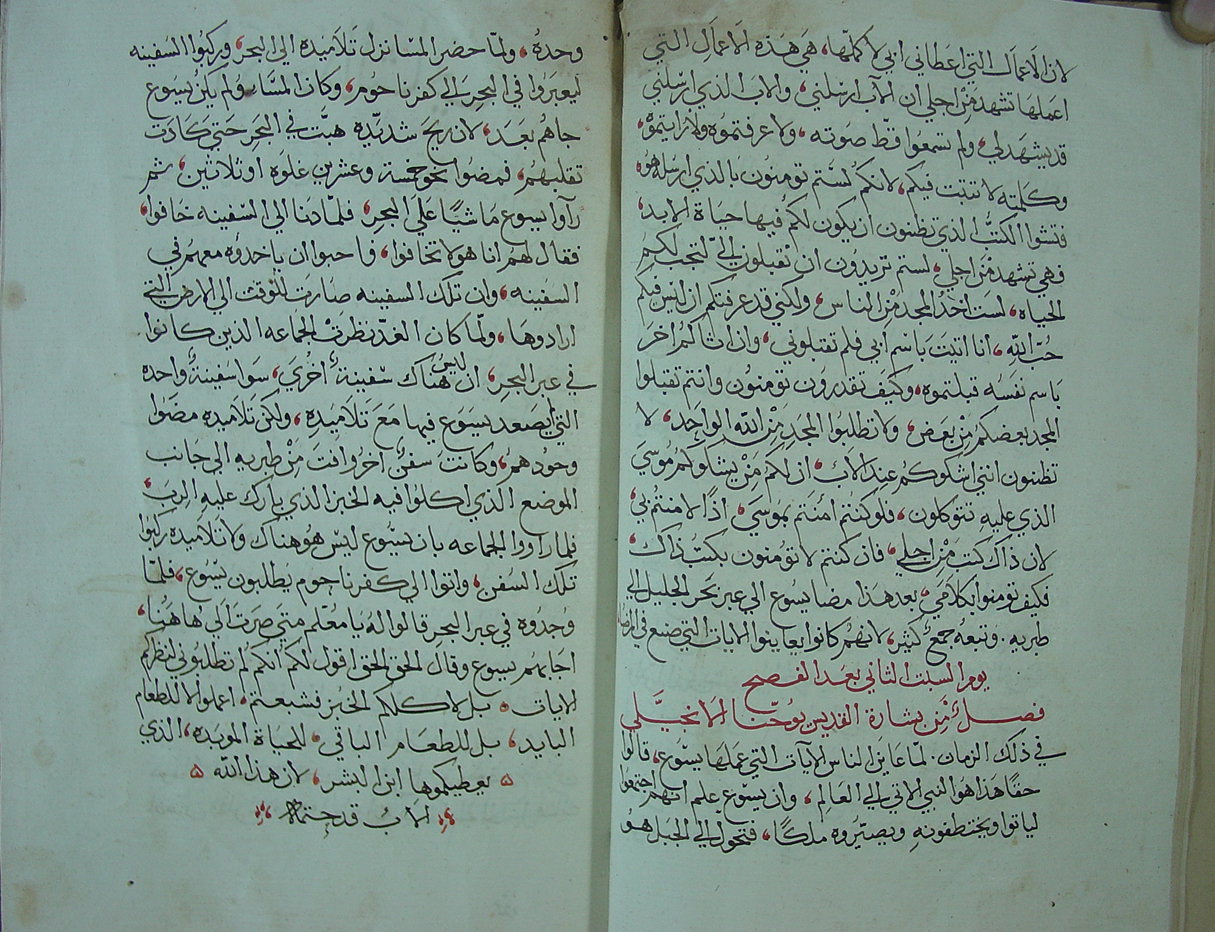 لان الاعمال التي اعطاني ابي لاكملها، هي هذه الاعمال التي
اعملها تشهد من اجلي ان الآب ارسلني، والاب الذي ارسلني
قد يشهد لي، ولم تسمعوا قط صوته، ولا عرفتموه ولا رايتموه،
وكلمته لا تثبت فيكم، لانكم لستم تومنون بالذي ارسله هو،
فتشوا الكتب الذي تظنون ان يكون لكم فيها حياة الابد،
فهي تشهد من اجلي، لستم تريدون ان تقبلون اليّ لتجب لكم
الحياه، لست اخذ المجد من الناس، ولكني قد عرفتكم ان ليس فيكم
حُب الله، انا اتيت باسم ابي فلم تقبلوني، وان اتاكم اخر
باسم نفسه قبلتموه، وكيف تقدرون تومنون وانتم تقبلوا
المجد بعضكم من بعض، ولا تطلبوا المجد من الله الواحد، لا
تظنون انني اشكوكم عند الاب، ان لكم من يشكوكم موسي
الذي عليه تتوكلون، فلو كنتم امنتم بموسي، اذًا لامنتم بي،
لان ذاك كتب من اجلي، فان كنتم لا تومنون بكتب ذاك،
فكيف تومنوا بكلامي، بعد هذا مضا يسوع الي عبر بحر الجليل الي
طبريه. وتبعه جمع كثير، لانهم كانوا يعاينوا الايات التي صنع في المرضا
يوم السبت الثاني بعد الفصح
فصل من بشارة القديس يوحنا الانجيلي
في ذلك الزمان. لما عاين الناس الآيات التي عملها يسوع، قالوا
حقًا هذا هو النبي الاتي الي العالم، وان يسوع علم انهم اجتمعوا
لياتوا ويختطفونه ويصيروه ملكًا، فتحول الي الجبل هو
وحدهُ، ولما حضر المسا نزل تلاميذه الي البحر، وركبوا السفينه
ليعبروا في البحر الي كفرناحوم، وكان المسا، ولم يكن يسوع
جاهم بعد، لان ريح شديده هبت في البحر حتي كادت
تقلبهم، فمضوا نحو خمسة وعشرين غلوه او ثلاثين، ثم
رآوا يسوع ماشيًا علي البحر، فلما دنا الي السفينه خافوا،
فقال لهم انا هو لا تخافوا، فاحبوا ان ياخذوه معهم في
السفينه، وان تلك السفينه صارت للوقت الي الارض التي
ارادوها، ولما كان الغد نظرت الجماعه الذين كانوا
في عبر البحر، ان ليس هناك سفينة أخري، سوا سفينة واحده
التي صعد يسوع فيها مع تلاميذه، ولكن تلاميذه مضوا
وحودهم، وكانت سفن اخر وافت من طبريه الي جانب
الموضع الذي اكلوا فيه الخبز الذي بارك عليه الرب،
فلما راووا الجماعه بان يسوع ليس هو هناك ولا تلاميذه ركبوا
تلك السفن، واتوا الي كفرناحوم يطلبون يسوع، فلما
وجدوه في عبر البحر قالوا له يا معلم متي صرت الي هاهنا،
اجابهم يسوع وقال الحق الحق اقول لكم انكم لم تطلبوني لنظركم
الايات، بل لاكلكم الخبز فشبعتم، اعملوا لا للطعام
البايد، بل للطعام الباقي، للحياة الموبده، الذي
يعطيكموها ابن البشر، لان هذا الله
الابُ قد ختمه